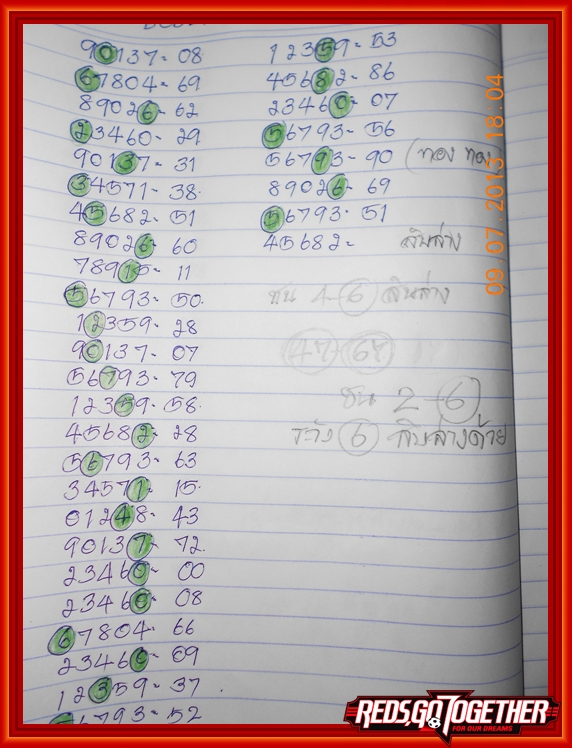 90137- 08
67804- 69
89026- 62
23460- 29
90137- 31
34571- 38.
45682- 51
89026- 60
78915- 11
56793- 50.
12359- 28
90137- 07
56793- 79
12359- 58.
45682- 28
56793- 63
34571- 15.
01248- 43
90137- 72.
23460- 00
23460- 08
67804- 66
23460- 09
12359- 37
56793- 52
12359- 53
45682- 86
23460- 07
56793- 56
56793- 90 (ทอง ทอง
89026- 69
56793- 51
45682- สิบล่าง
ชน 4-6 สิบล่าง
47-67
ชน 2-6
ระวัง 6 สิบล่างด้วย
09/07/2013 18:04
REDS,GOTOGETHER
FOR OUR DREAMS